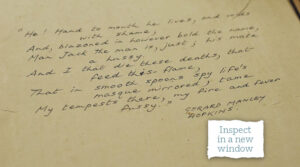 "He! Hand to mouth he lives, and voids
with shame;
And, blazoned in however bold the name,
Man Jack the man is, just; his mate
a hussy.
And I that die these deaths, that
feed this flame,
That in smooth spoons spy life's
masque mirrored; tame
My tempests there, my fire and fever
fussy."
GERARD MANLEY
HOPKINS.
Inspect
in a new
window